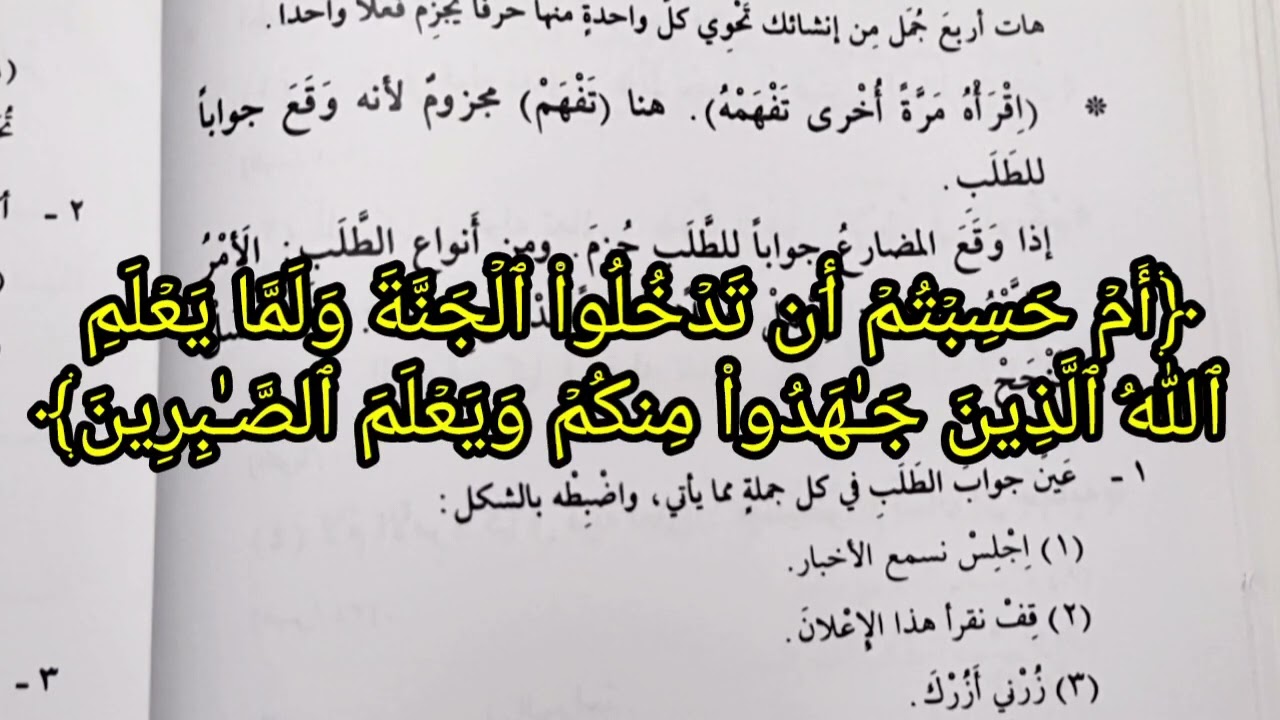 هات أربعَ جُمَل مِن إنشائك تَحْوِي كلّ واحدةٍ منها حرفاً يجزِم فعلاً واحداً.
* (اِقْرَأْهُ مَرَّةً أُخْرى تَفْهَمْهُ). هنا (تَفْهَمْ) مجزومٌ لأنه وَقَعَ جواباً
للطَلَب.
إذا وَقَعَ المضارعُ جواباً للطَّلَب جُزِمَ. ومن أنواع الطَّلَب: الَأمْرُ
﴿أَمْ حَسِبْتُمْ أَن تَدْخُلُوا۟ ٱلْجَنَّةَ وَلَمَّا يَعْلَمِ
ٱللَّهُ ٱلَّذِينَ جَـٰهَدُوا۟ مِنكُمْ وَيَعْلَمَ ٱلصَّـٰبِرِينَ﴾
١ - عَيِّنْ جوابَ الطَلَبِ في كل جملةٍ مما يأتي، واضْبِطْه بالشكل:
(١) اِجْلِسْ نسمع الأخبار.
(٢) قِفْ نقرأ هذا الإِعْلانَ.
(٣) زُرْني أَزُرْكَ.
٢ -
٣ -